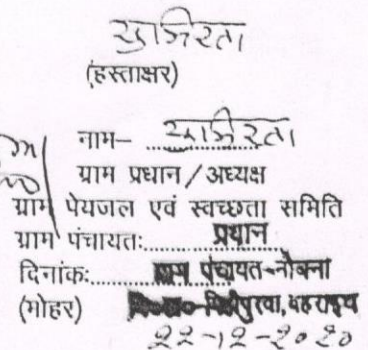 (हस्ताक्षर)
नाम–
ग्राम प्रधान/अध्यक्ष
ग्राम पेयजल एवं स्वच्छता समिति
ग्राम पंचायतः प्रधान
दिनांकः ग्राम पंचायत-नौबना
(मोहर) मिहींपुरवा, बहराइच
22-12-2020